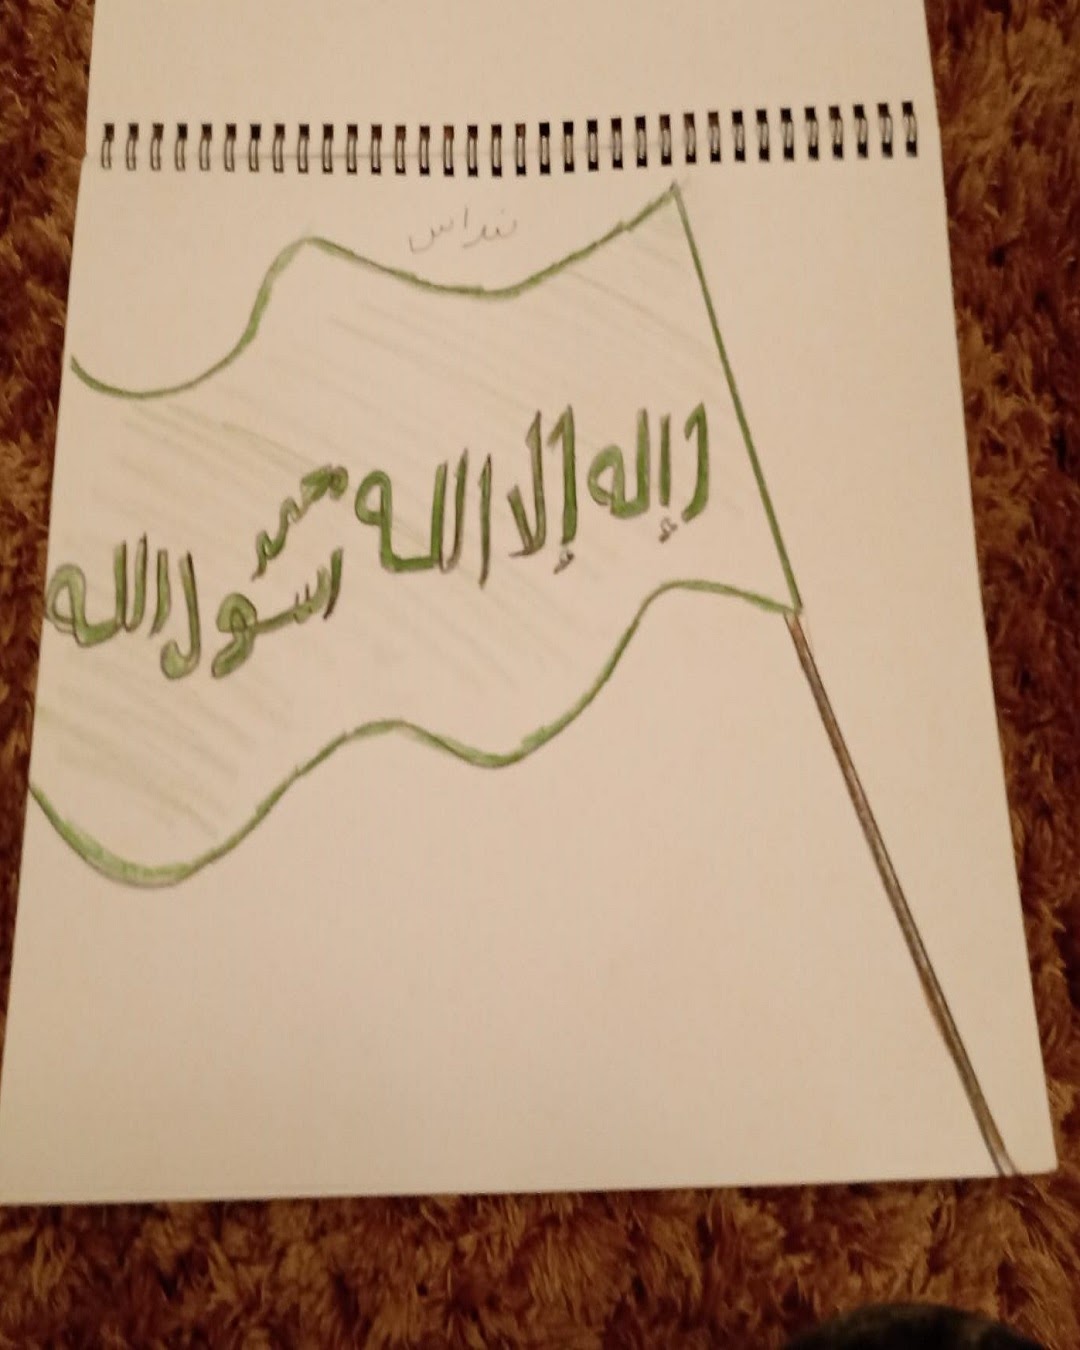 نبراس
لا إله إلا الله محمد
رسول الله